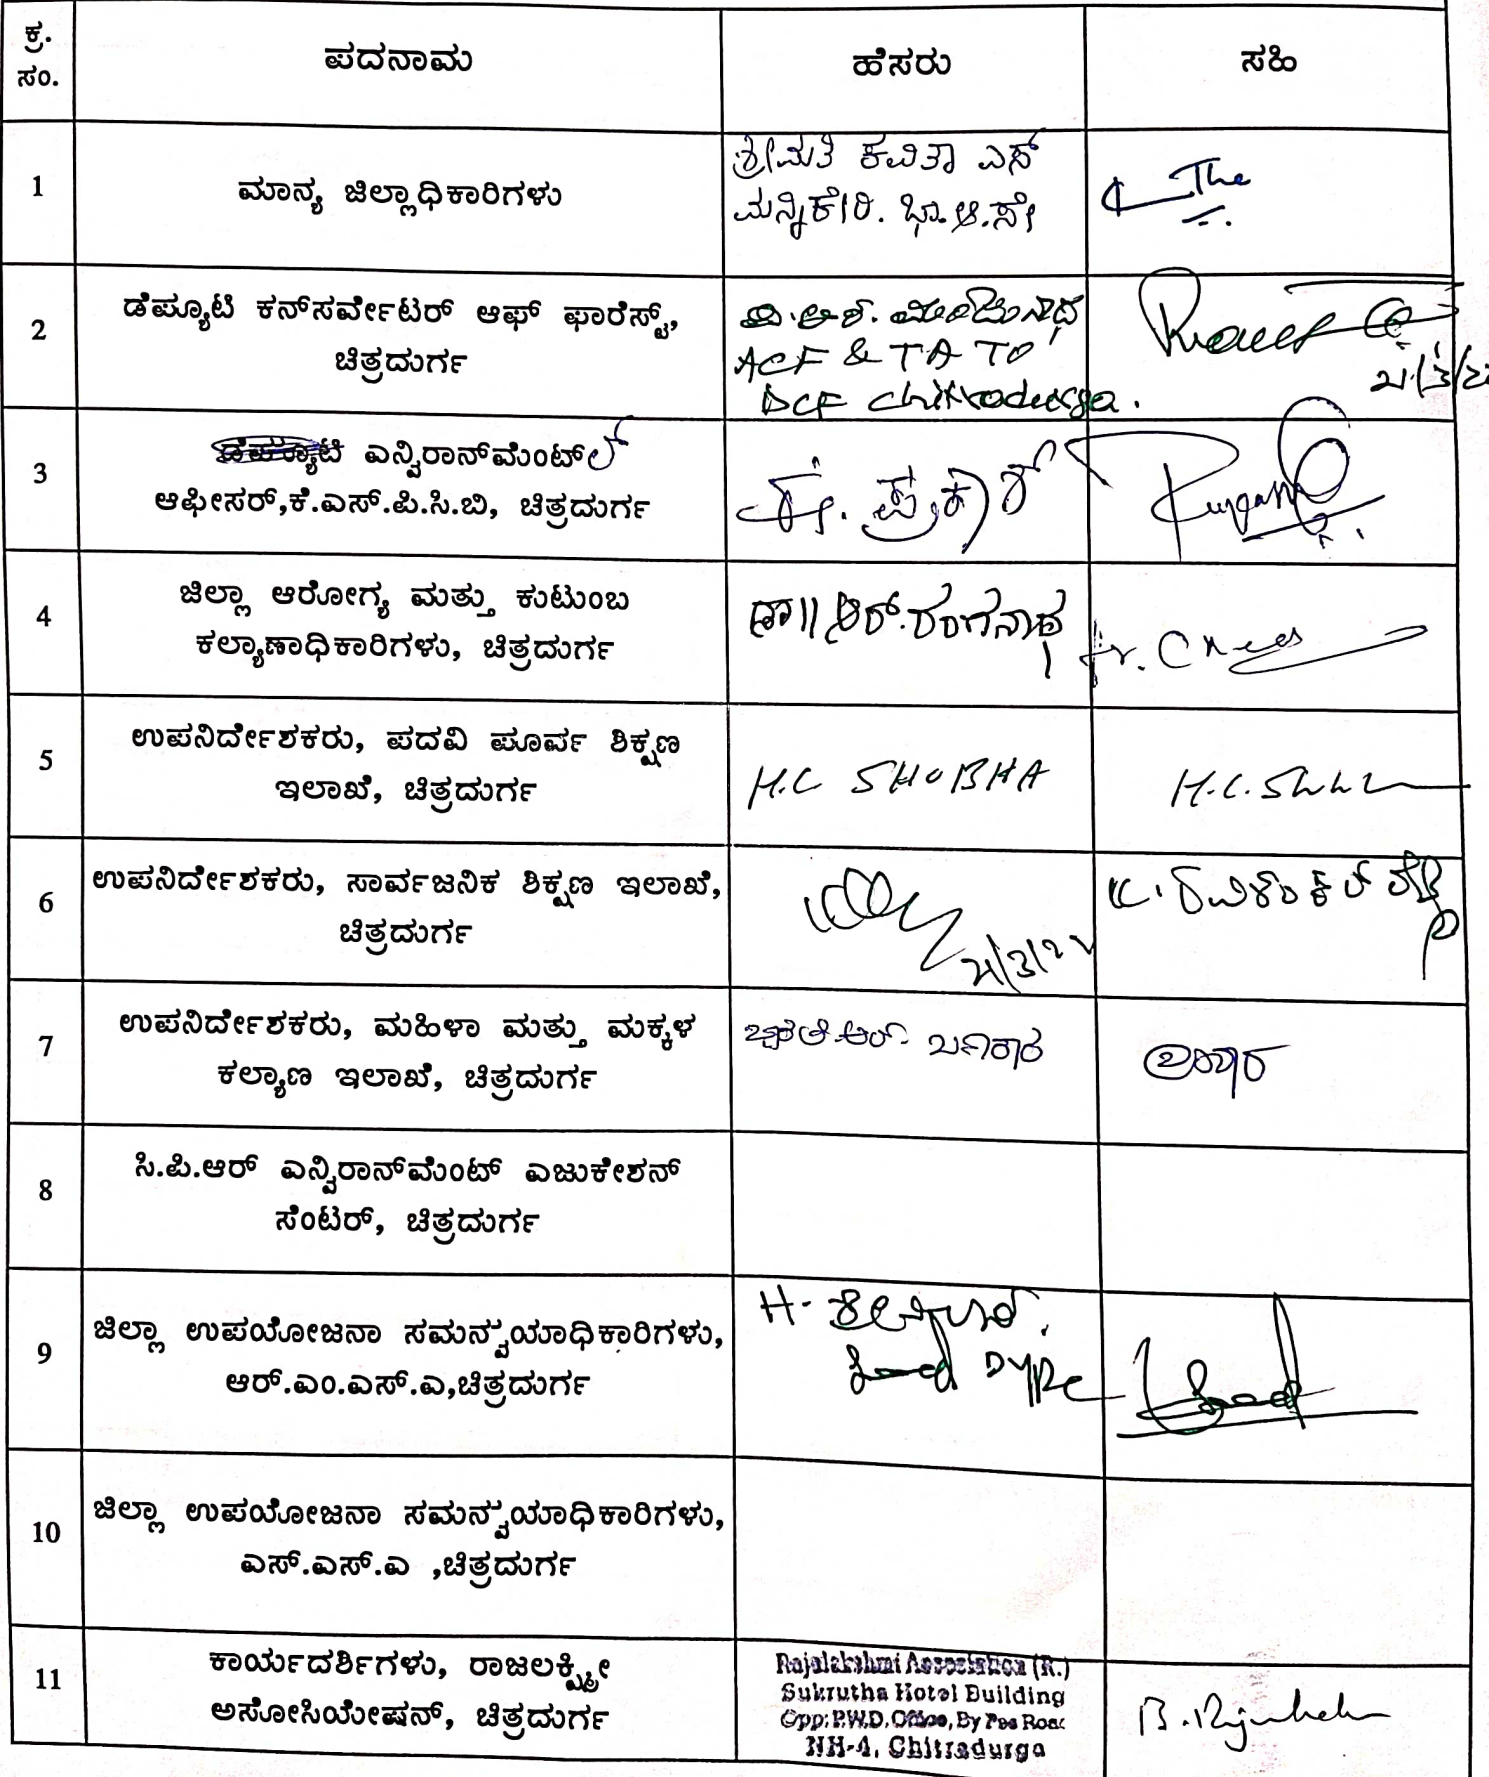 ಕ್ರ. ಸಂ.
ಪದನಾಮ
ಹೆಸರು
ಸಹಿ
1
ಮಾನ್ಯ ಜಿಲ್ಲಾಧಿಕಾರಿಗಳು
ಶ್ರೀಮತಿ ಕವಿತಾ ಎಸ್
ಮನ್ನಿಕೇರಿ. ಭಾ.ಆ.ಸೇ
2
ಡೆಪ್ಯೂಟಿ ಕನ್‌ಸರ್ವೇಟರ್ ಆಫ್ ಫಾರೆಸ್ಟ್,
ಚಿತ್ರದುರ್ಗ
ACF & TA TO
DCF Chitradurga.
21/3/22
3
ಡೆಪ್ಯೂಟಿ ಎನ್ವಿರಾನ್‌ಮೆಂಟ್ಲ್
ಆಫೀಸರ್,ಕೆ.ಎಸ್.ಪಿ.ಸಿ.ಬಿ, ಚಿತ್ರದುರ್ಗ
ಪ್ರಕಾಶ್
4
ಜಿಲ್ಲಾ ಆರೋಗ್ಯ ಮತ್ತು ಕುಟುಂಬ
ಕಲ್ಯಾಣಾಧಿಕಾರಿಗಳು, ಚಿತ್ರದುರ್ಗ
ಡಾ|| ಆರ್.ರಂಗನಾಥ
5
ಉಪನಿರ್ದೇಶಕರು, ಪದವಿ ಪೂರ್ವ ಶಿಕ್ಷಣ
ಇಲಾಖೆ, ಚಿತ್ರದುರ್ಗ
H.C SHOBHA
6
ಉಪನಿರ್ದೇಶಕರು, ಸಾರ್ವಜನಿಕ ಶಿಕ್ಷಣ ಇಲಾಖೆ,
ಚಿತ್ರದುರ್ಗ
21/3/22
K. ರವಿಶಂಕರ್ ರೆಡ್ಡಿ
7
ಉಪನಿರ್ದೇಶಕರು, ಮಹಿಳಾ ಮತ್ತು ಮಕ್ಕಳ
ಕಲ್ಯಾಣ ಇಲಾಖೆ, ಚಿತ್ರದುರ್ಗ
ಭಾರತಿ.ಆರ್. ಬಣಕಾರ
8
ಸಿ.ಪಿ.ಆರ್ ಎನ್ವಿರಾನ್‌ಮೆಂಟ್ ಎಜುಕೇಶನ್
ಸೆಂಟರ್, ಚಿತ್ರದುರ್ಗ
9
ಜಿಲ್ಲಾ ಉಪಯೋಜನಾ ಸಮನ್ವಯಾಧಿಕಾರಿಗಳು,
ಆರ್.ಎಂ.ಎಸ್.ಎ,ಚಿತ್ರದುರ್ಗ
DYPC
10
ಜಿಲ್ಲಾ ಉಪಯೋಜನಾ ಸಮನ್ವಯಾಧಿಕಾರಿಗಳು,
ಎಸ್.ಎಸ್.ಎ ,ಚಿತ್ರದುರ್ಗ
11
ಕಾರ್ಯದರ್ಶಿಗಳು, ರಾಜಲಕ್ಷ್ಮೀ
ಅಸೋಸಿಯೇಷನ್, ಚಿತ್ರದುರ್ಗ
Rajalakshmi Association (R.)
Sukrutha Hotel Building
Opp: P.W.D. Office, By Pas Road
NH-4, Chitradurga